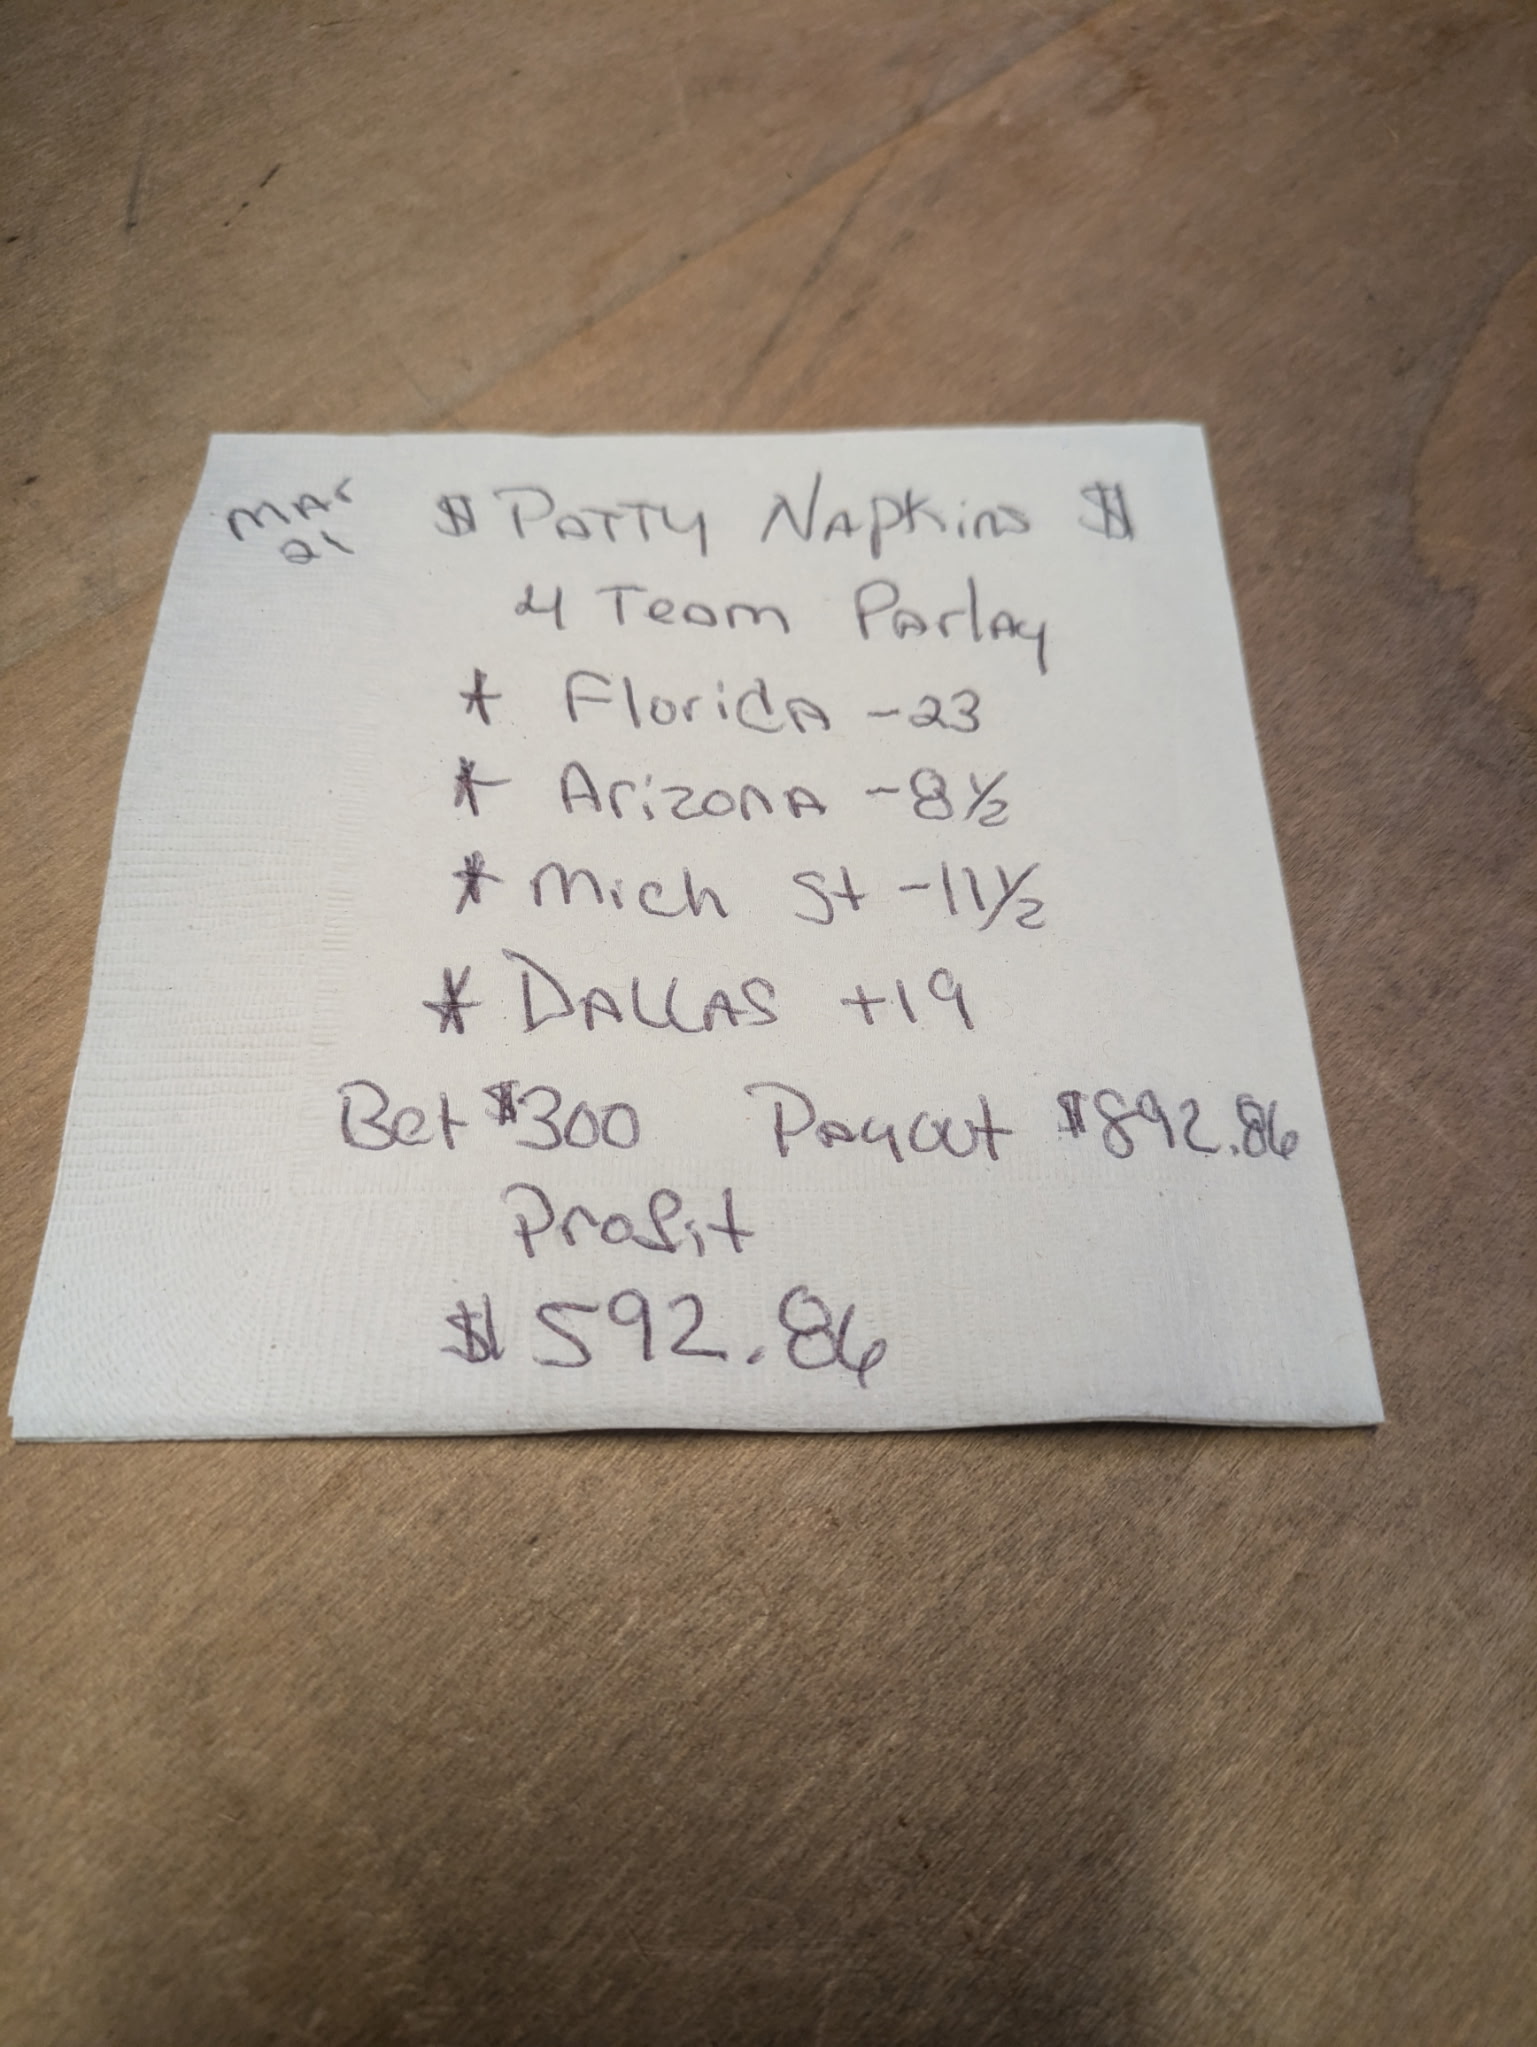 Mar
21
$ Patty Napkins $
4 Team Parlay
* Florida -23
* Arizona -8½
* Mich St -11½
* DALLAS +19
Bet $300 Payout $892.86
Profit
$592.86